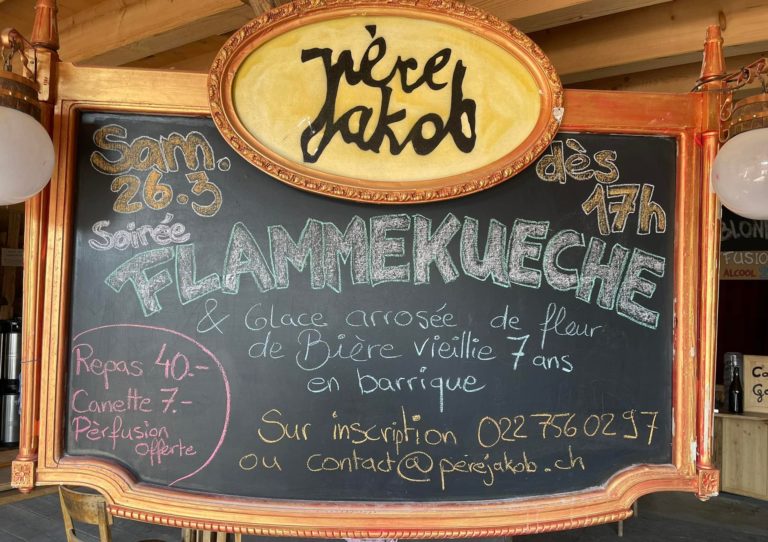 père
jakob
Sam.
26.3
dès
17h
Soirée
FLAMMEKUECHE
& Glace arrosée de fleur
de Bière vieillie 7 ans
en barrique
Repas 40.-
Canette 7.-
Pèrfusion
offerte
Sur inscription 022 756 02 97
ou contact@pèrejakob.ch
BLON
FUSIO
ALCOOL